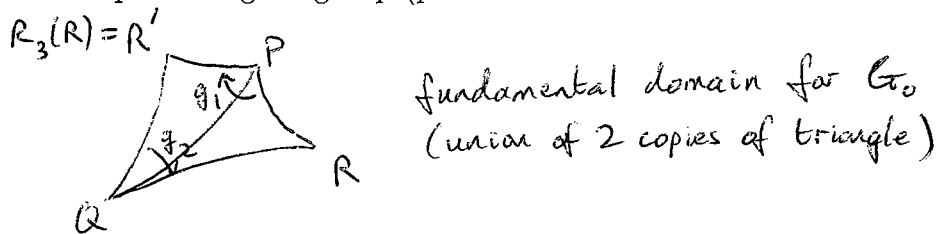 R₃(R) = R'
P
g₁
fundamental domain for G₀
(union of 2 copies of triangle)
g₂
R
Q